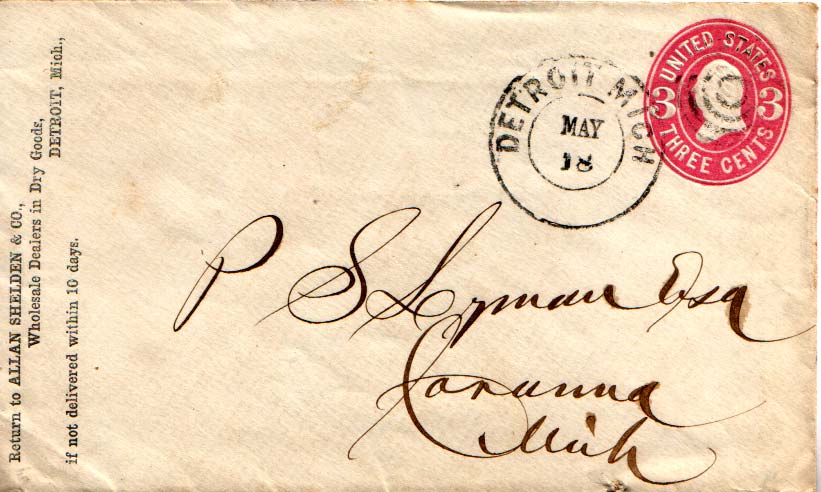 Return to ALLAN SHELDEN & CO.,
Wholesale Dealers in Dry Goods,
DETROIT, Mich.,
if not delivered within 10 days.
DETROIT MICH
MAY
18
UNITED STATES
3 3
THREE CENTS
P S Lyman Esq
Corunna
Mich